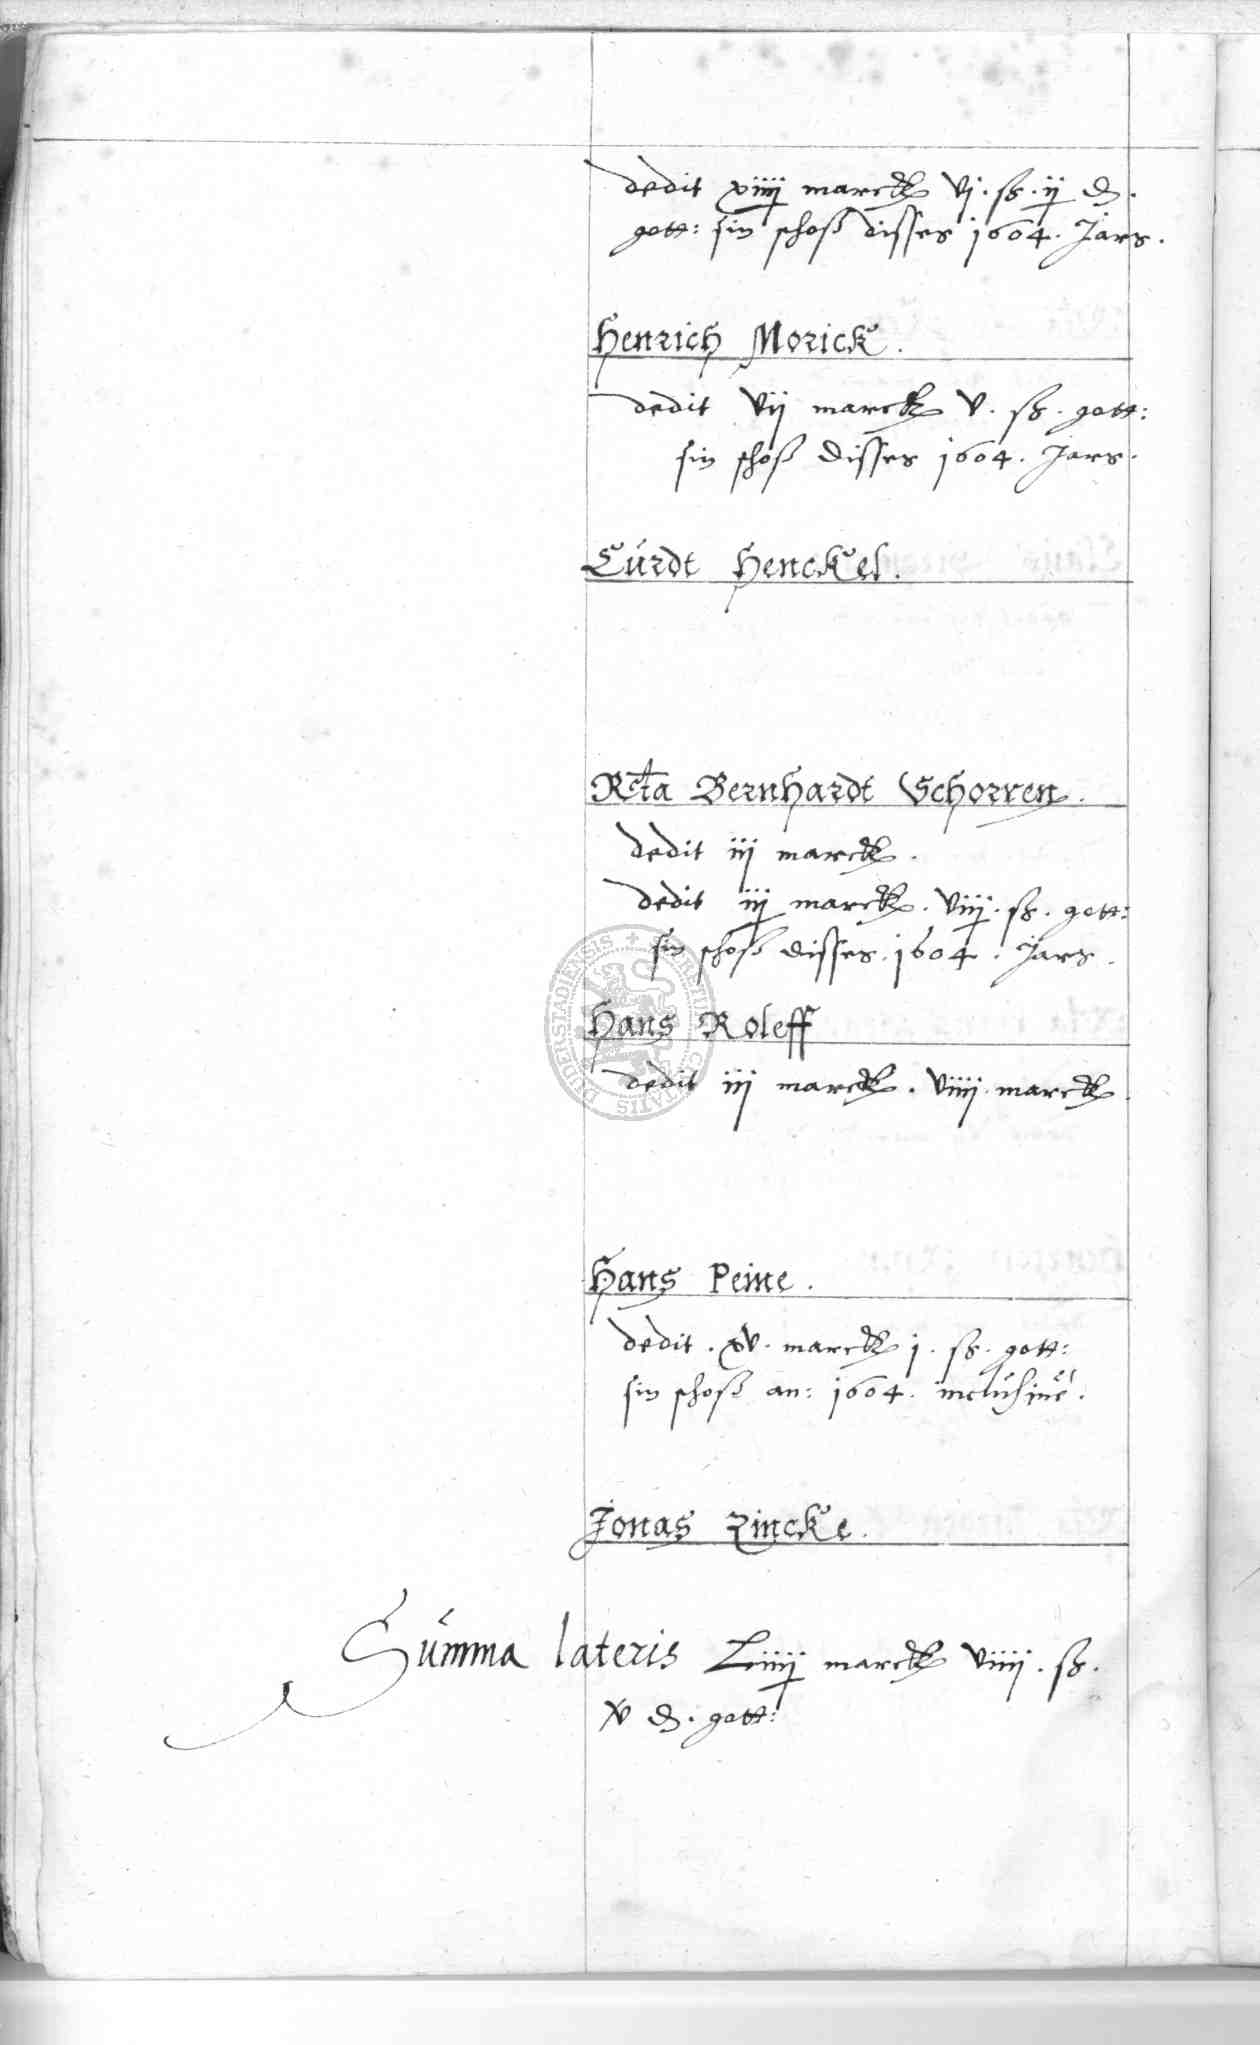 dedit xiiij marck vj. ß. ij d.
gott: sin schoß disses 1604. Jars.
Henrich Morick.
dedit vij marck v. ß. gott:
sin schoß disses 1604. Jars.
Cúrdt Henckel.
Rcta Bernhardt Schorren.
dedit iij marck.
dedit iij marck. viij. ß. gott:
sin schoß disses. 1604. Jars.
Hans Roleff
dedit iij marck. viiij marck.
Hans Peine.
dedit. xv. marck j. ß. gott:
sin schoß an: 1604. inclúsiúe.
Jonas Zincke.
Súmma lateris Liiij marck viiij. ß.
v d. gott:
DUDERSTADIENSIS